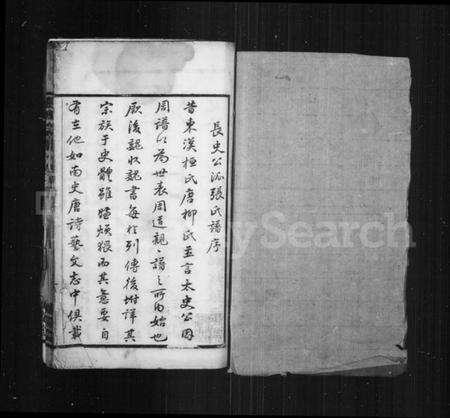 長史公派張氏譜序
昔東漢桓氏唐柳氏並言太史公因
周譜以為世表周道親、譜之所由始也
厥後魏收魏書每於列傳後附詳其
宗族于史體雖猥而其意要自
有在他如南史唐詩藝文志中俱載
Search